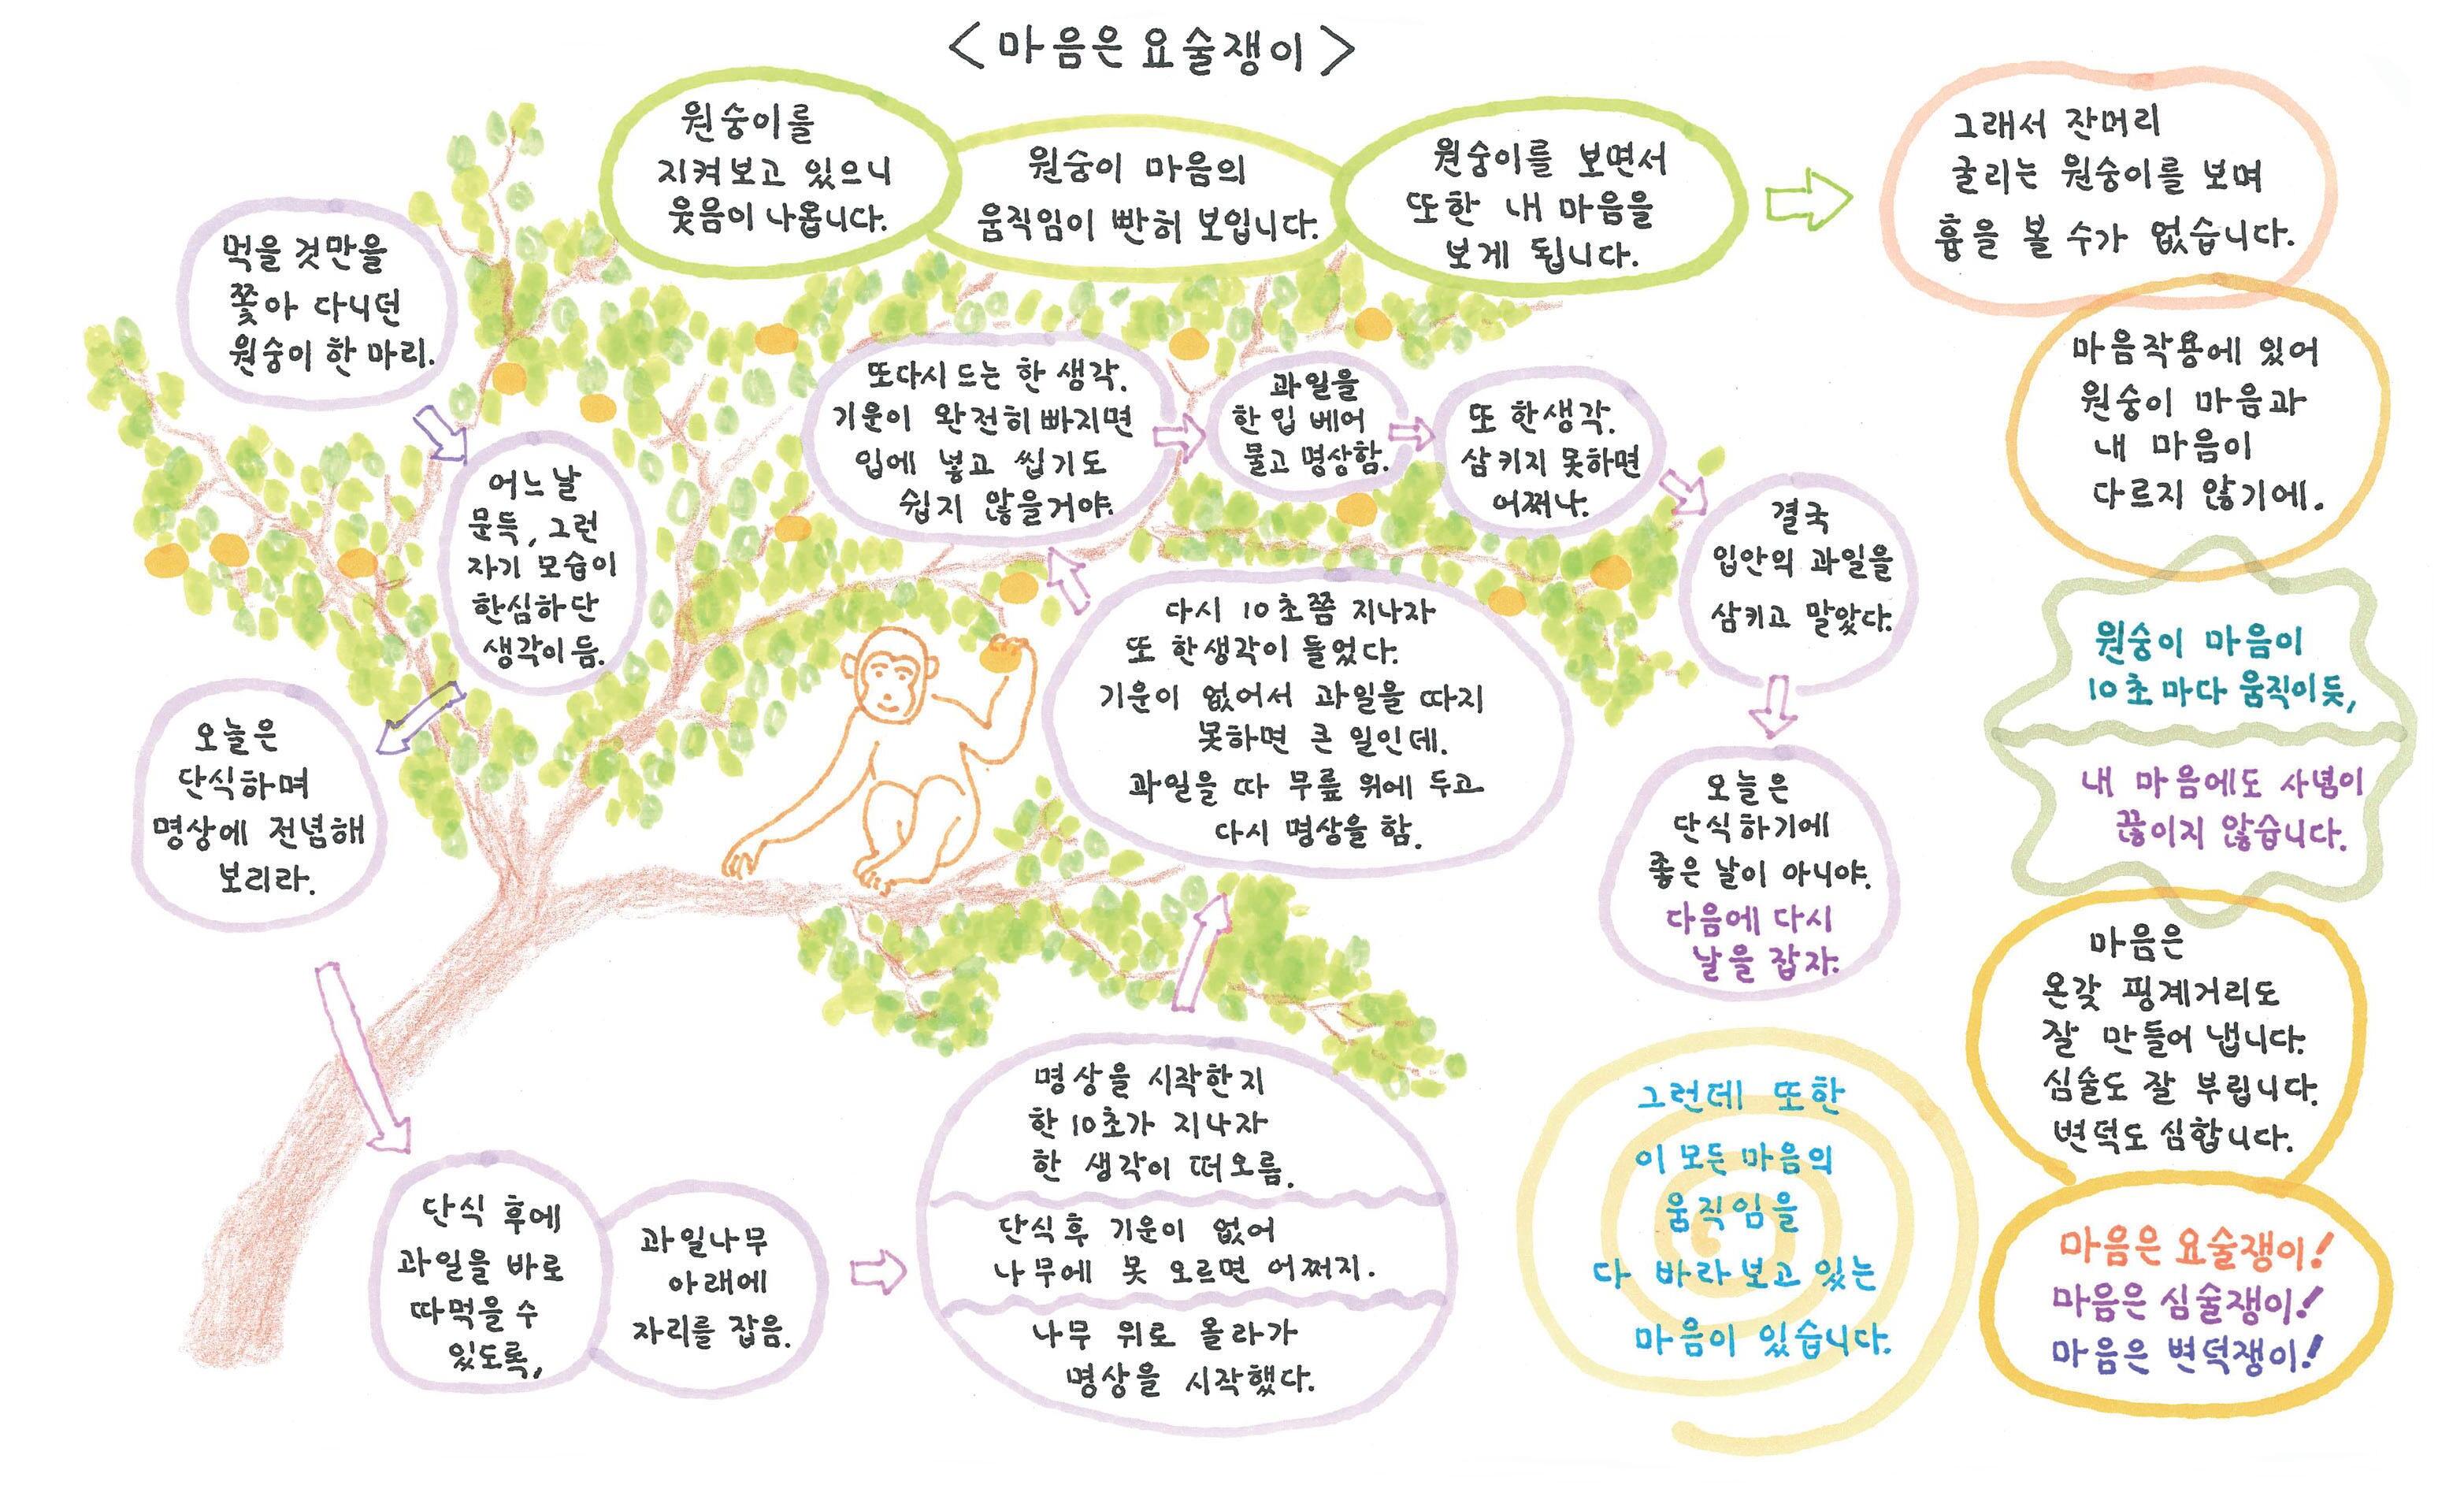 <마음은 요술쟁이>
먹을 것만을
쫓아 다니던
원숭이 한 마리.
어느 날
문득, 그런
자기 모습이
한심하단
생각이 듬.
오늘은
단식하며
명상에 전념해
보리라.
단식 후에
과일을 바로
따먹을 수
있도록,
과일나무
아래에
자리를 잡음.
명상을 시작한지
한 10초가 지나자
한 생각이 떠오름.
단식후 기운이 없어
나무에 못 오르면 어쩌지.
나무 위로 올라가
명상을 시작했다.
다시 10초쯤 지나자
또 한생각이 들었다.
기운이 없어서 과일을 따지
못하면 큰 일인데.
과일을 따 무릎 위에 두고
다시 명상을 함.
또다시 드는 한 생각.
기운이 완전히 빠지면
입에 넣고 씹기도
쉽지 않을거야.
과일을
한 입 베어
물고 명상함.
또 한생각.
삼키지 못하면
어쩌나.
결국
입안의 과일을
삼키고 말았다.
오늘은
단식하기에
좋은 날이 아니야.
다음에 다시
날을 잡자.
원숭이를
지켜보고 있으니
웃음이 나옵니다.
원숭이 마음의
움직임이 빤히 보입니다.
원숭이를 보면서
또한 내 마음을
보게 됩니다.
그래서 잔머리
굴리는 원숭이를 보며
흉을 볼 수가 없습니다.
마음작용에 있어
원숭이 마음과
내 마음이
다르지 않기에.
원숭이 마음이
10초마다 움직이듯,
내 마음에도 사념이
끊이지 않습니다.
마음은
온갖 핑계거리도
잘 만들어 냅니다.
심술도 잘 부립니다.
변덕도 심합니다.
마음은 요술쟁이!
마음은 심술쟁이!
마음은 변덕쟁이!
그런데 또한
이 모든 마음의
움직임을
다 바라보고 있는
마음이 있습니다.